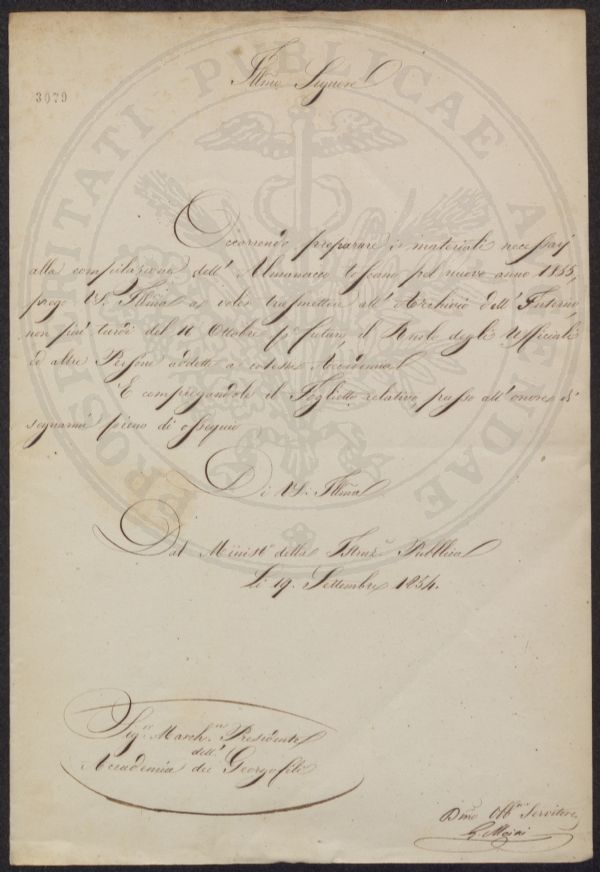 3079
Illmo Signore
Occorrendo preparare i materiali necessarj
alla compilazione dell' Almanacco toscano pel nuovo anno 1855,
prego VS. Illma a voler trasmettere all' Archivio dell' Interno,
non più tardi del 16 Ottobre p° futuro, il Ruolo degli Ufficiali
ed altre Persone addette a cotesta Accademia
E compiegandole il Foglietto relativo, passo all' onore di
segnarmi pieno di ossequio
Di VS. Illma
Dal Minist° della Istruz.e Pubblica
Li 19. Settembre 1854.
Sig.r March.e Presidente
dell'
Accademia dei Georgofili
Dmo Obb.mo Servitore
PROSPERITATI PUBLICAE AUGENDAE